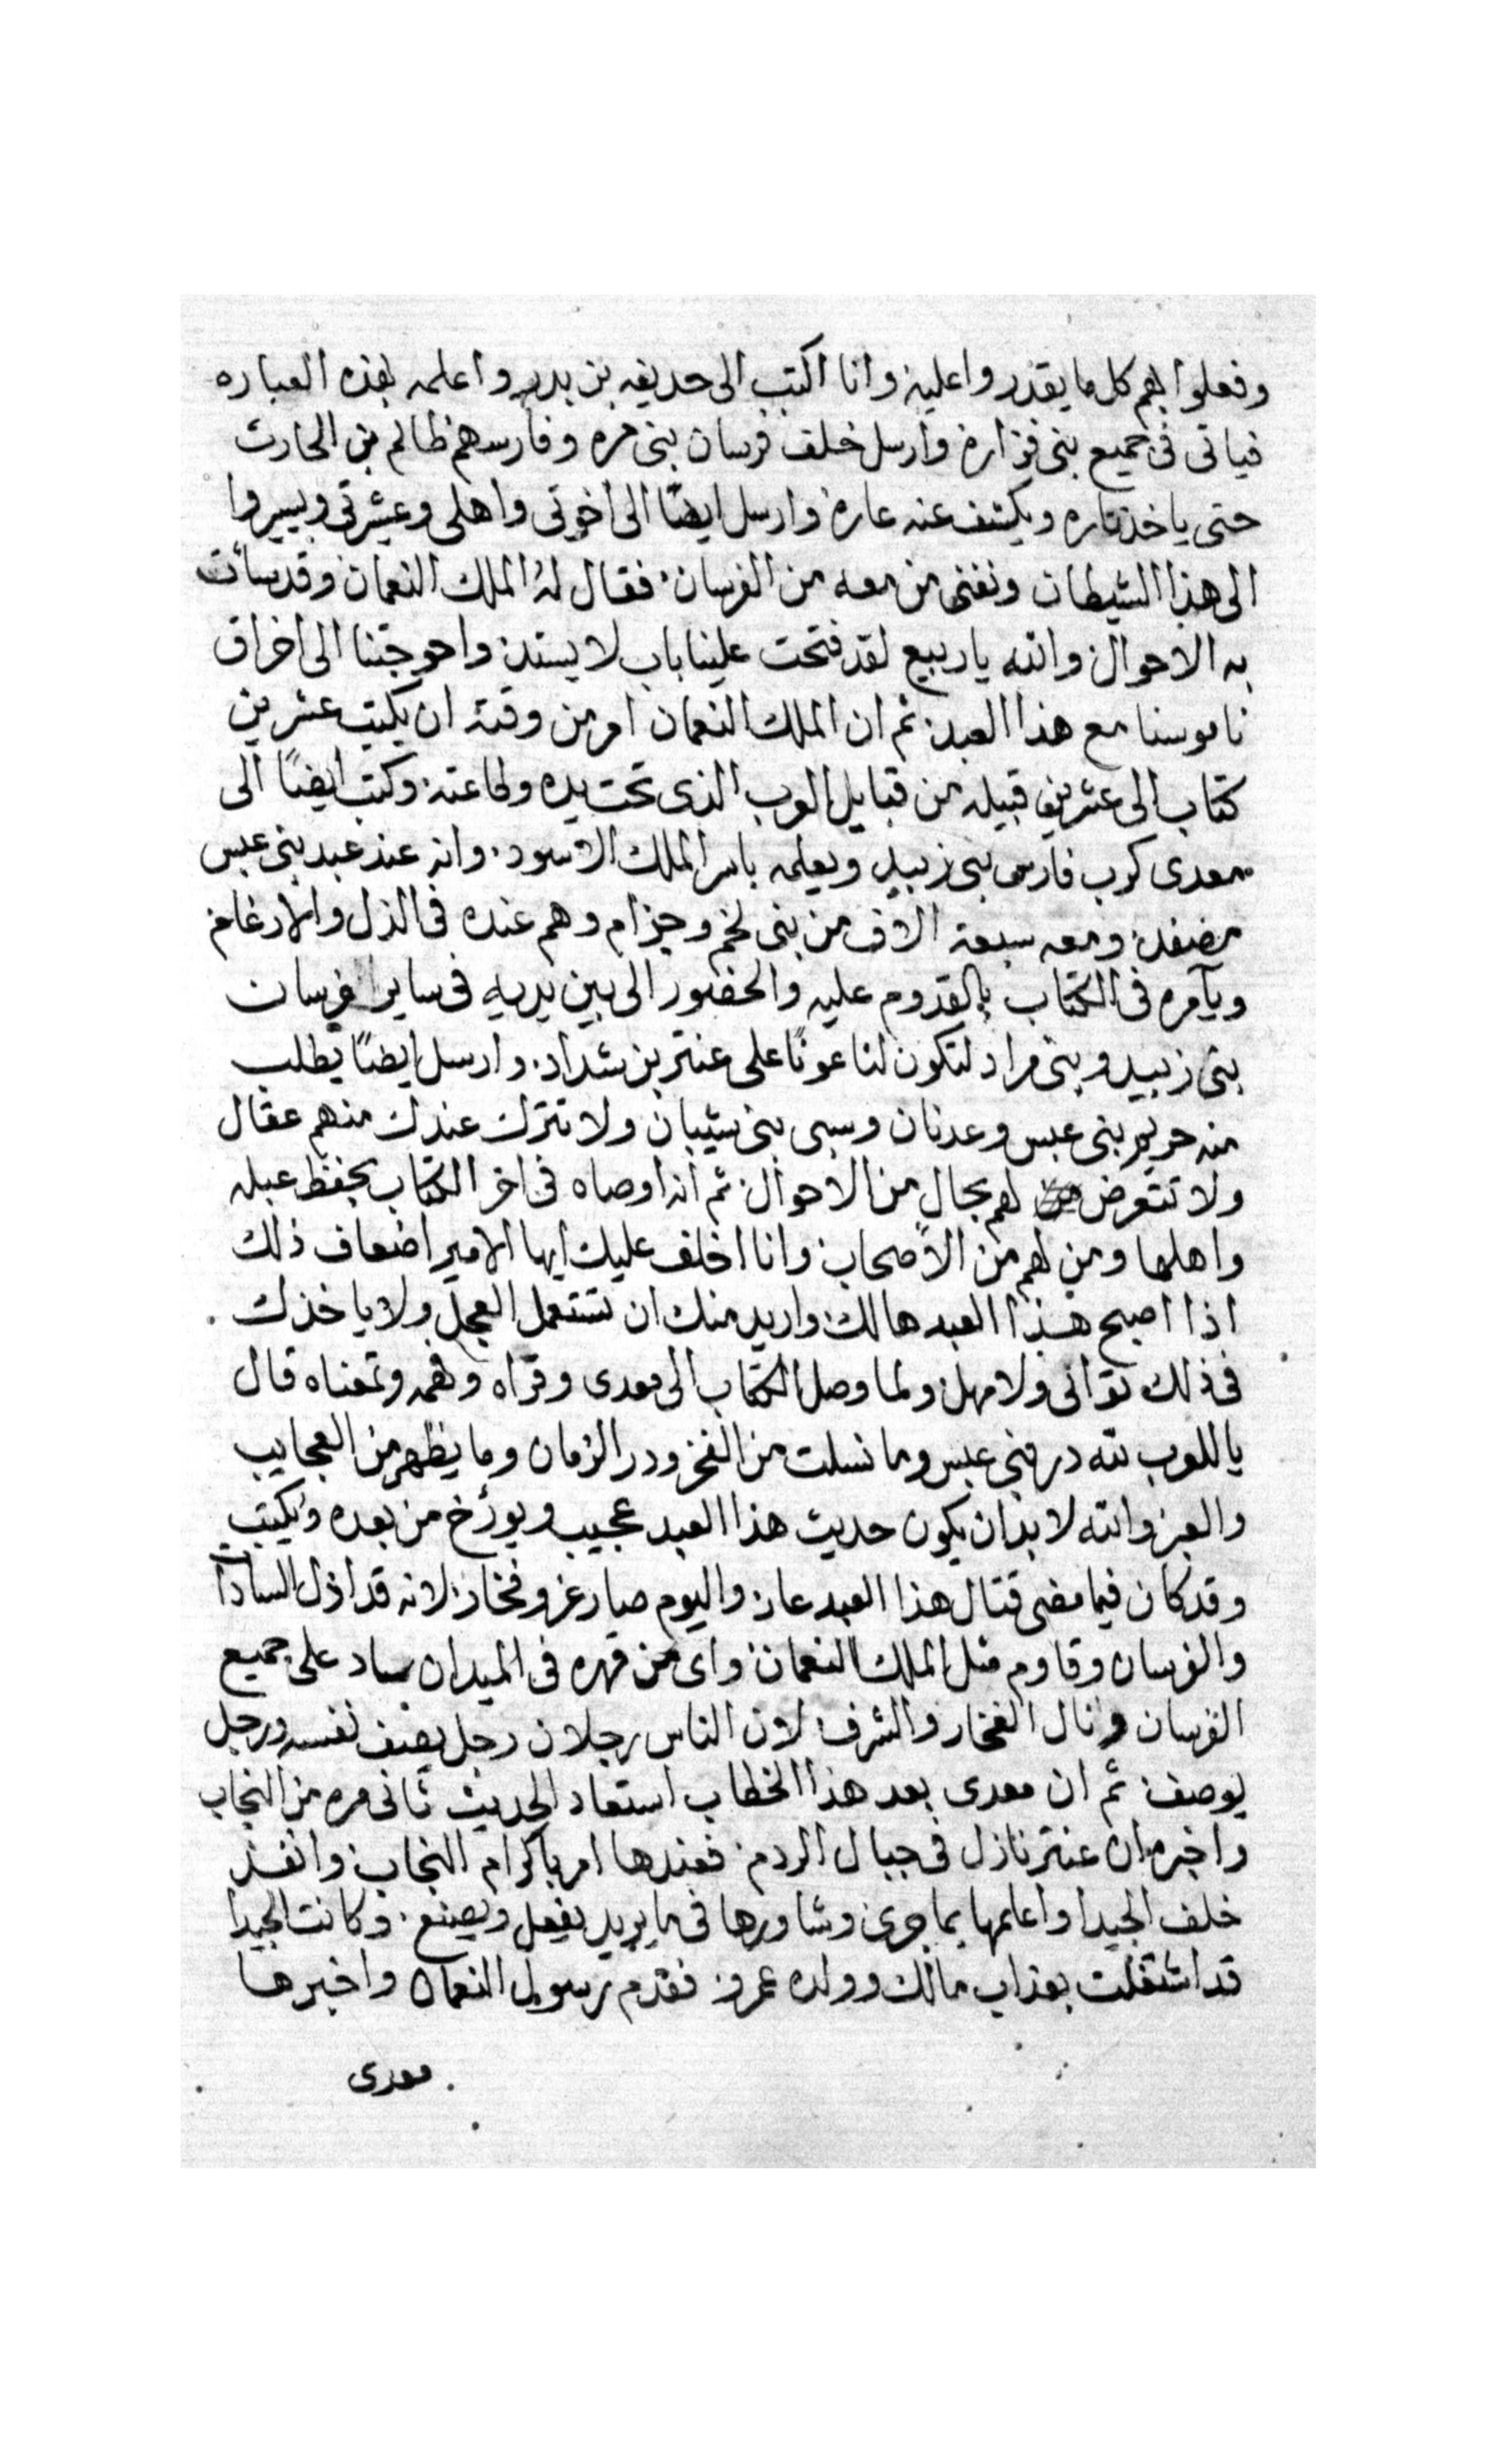 وفعلوا بهم كل ما يقدروا عليه وانا اكتب الى حديفه بن بدر واعلمه بهذه العباره
فياتى فى جميع بنى فزاره وارسل خلف فرسان بنى مره وفارسهم ظالم بن الحارث
حتى ياخذ تاره ويكشف عنه عاره وارسل ايضًا الى اخوتى واهلى وعشيرتى ويسيروا
الى هذا الشيطان ونفنى من معه من الفرسان فقال له الملك النعمان وقد سأت
به الاحوال والله ياربيع لقد فتحت علينا باب لا يستد واحوجتنا الى اخراق
ناموسنا مع هذا العبد ثم ان الملك النعمان امر من وقته ان يكتب عشرين
كتاب الى عشرين قبيله من قبايل العرب الذى تحت يده وطاعته وكتب ايضًا الى
معدى كرب فارس بنى زبيد ويعلمه باسر الملك الاسود وانه عند عبد بنى عبس
مصفد ومعه سبعة الاف من بنى لخم وجزام وهم عنده فى الذل والارغام
ويآمره فى الكتاب بالقدوم عليه والحضور الى بين يديه فى ساير فرسان
بنى زبيد وبنى مراد لتكون لنا عونًا على عنتر بن شداد وارسل ايضًا يطلب
منه حريم بنى عبس وعدنان وسبى بنى شيبان ولا تترك عندك منهم عقال
ولا تتعرض لهم بحال من الاحوال ثم انه اوصاه فى اخر الكتاب بحفظ عبله
واهلها ومن لهم من الاصحاب وانا اخلف عليك ايها الامير اضعاف ذلك
اذا اصبح هذا العبد هالك واريد منك ان تستعمل العجل ولا ياخذك
فى ذلك توانى ولا مهل ولما وصل الكتاب الى معدى وقراه وفهمه ومعناه قال
ياللعرب لله در بنى عبس وما نسلت من الفخر ودر الزمان وما يظهر من العجايب
والعبر والله لا بد ان يكون حديث هذا العبد عجيب ويورخ من بعده ويكتب
وقد كان فيما مضى قتال هذا العبد عار واليوم صار عز وفخار لانه قد اذل السادا
والفرسان وقاوم مثل الملك النعمان واى من قهره فى الميدان ساد على جميع
الفرسان ونال الفخار والشرف لان الناس رجلان رجل يصف نفسه ورجل
يوصف ثم ان معدى بعد هذا الخطاب استعاد الحديث ثانى مره من النجاب
واخبره ان عنتر نازل فى جبال الردم فعندها امر باكرام النجاب وانفذ
خلف الجيدا واعلمها بما جرى وشاورها فى ما يريد يفعل ويصنع وكانت الجيدا
قد اشتغلت بعذاب مالك وولده عمرو فقدم رسول النعمان واخبرها
معدى